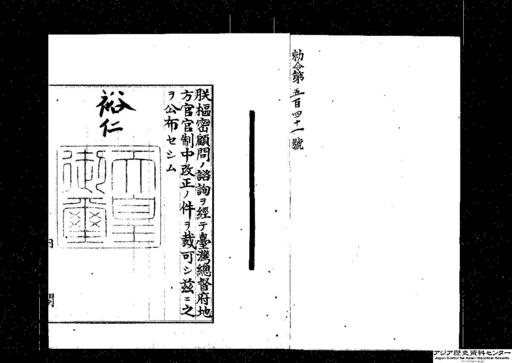 勅令第五百四十一號
朕樞密顧問ノ諮詢ヲ經テ臺灣總督府地
方官官制中改正ノ件ヲ裁可シ茲ニ之
ヲ公布セシム
裕仁
天皇
御璽
内閣
アジア歴史資料センター
Japan Center for Asian Historical Records